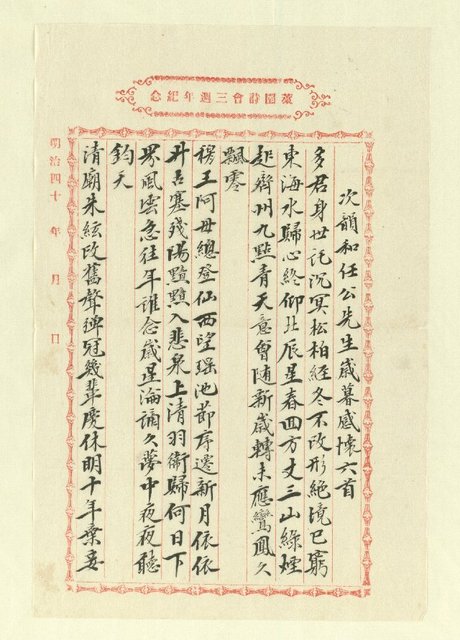 萊園詩會三週年紀念
次韻和任公先生歲暮感懷六首
多君身世託沉冥松柏經冬不改形絕境已窮
東海水歸心終仰北辰星春回方丈三山綠煙
起齊州九點青天意會隨新歲轉未應鸞鳳久
飄零
穆王阿母總登仙西望瑤池節序遷新月依依
升古塞殘陽黯黯入悲泉上清羽衛歸何日下
界風雲急往年誰念歲星淪謫久夢中夜夜聽
鈞天
清廟朱絃改舊聲彈冠幾輩慶休明十年棄妾
明治四十年月日